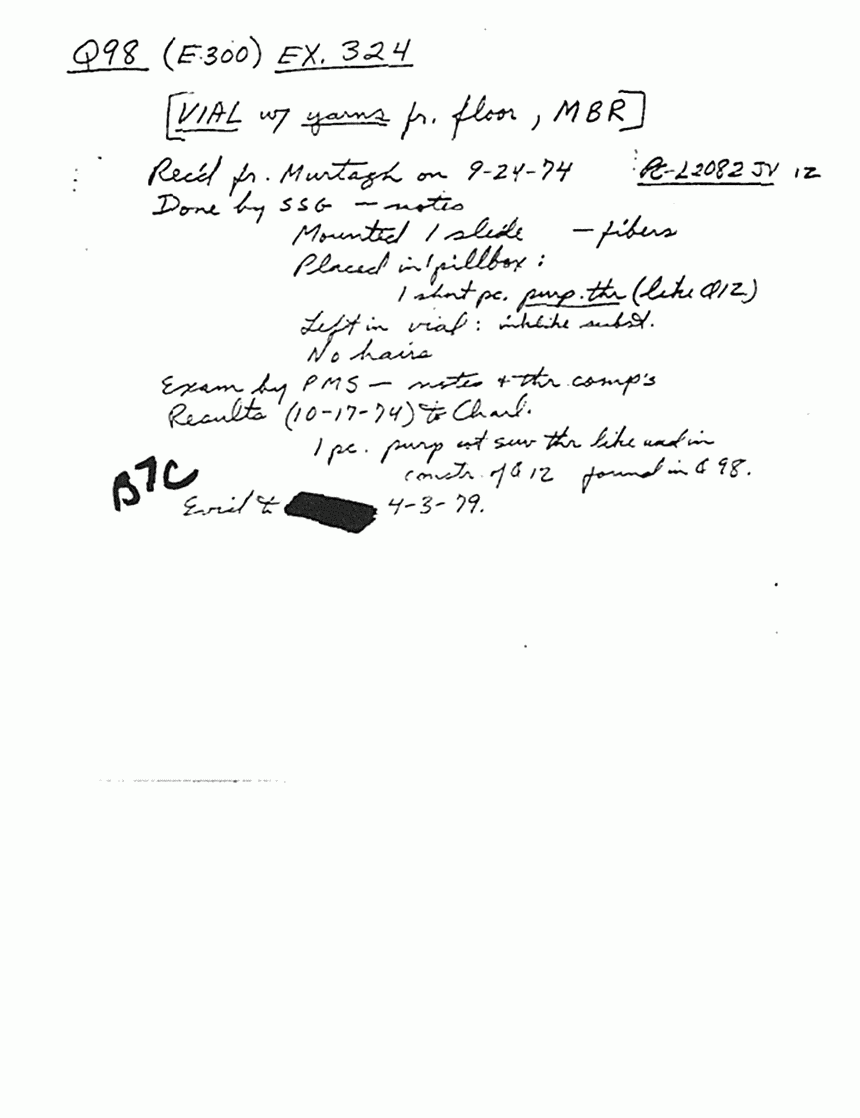 Q98 (E-300) EX. 324
[VIAL w/ yarns fr. floor, MBR]
Rec'd fr. Murtagh on 9-24-74 PC-L2082 JV 12
Done by SSG — notes
Mounted 1 slide — fibers
Placed in 1 pillbox:
1 short pc. purp. thr (like Q12)
Left in vial: inklike subst.
No hairs
Exam by PMS — notes + thr comp's
Results (10-17-74) to Charl.
1 pc. purp cot sew thr like used in
constr. of Q12 found in Q98.
B7C
Evid to 4-3-79.